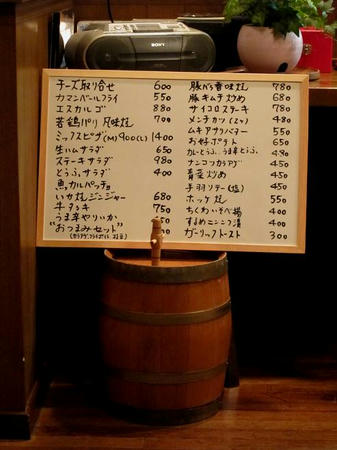 SONY
チーズ取り合せ 600
カマンベールフライ 550
エスカルゴ 880
若鶏パリパリ風味焼 700
ミックスピザ(M)900(L) 1400
生ハムサラダ 650
ステーキサラダ 980
とうふサラダ 400
魚カルパッチョ
いか焼ジンジャー 680
牛タタキ 750
うま辛やりいか
"おつまみセット"
豚バラ香味焼 780
豚キムチ炒め 680
サイコロステーキ 780
メンチカツ(2ヶ) 480
ムキアサリバター 550
お好ポテト 650
カレーとうふ、うま辛とうふ 490
ナンコツカラアゲ 450
青菜炒め 450
手羽ソテー(塩) 450
ホッケ焼 550
ちくわいそべ揚 400
するめニンニク漬 400
ガーリックトースト 300